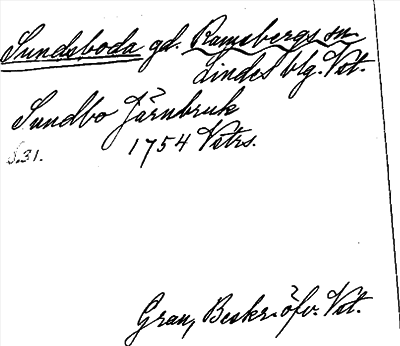 Sundsboda gd. Ramsbergs sn.
Lindes blg. Vst.
Sundbo Järnbruk
S.31. 1754 Vstrs.
Grau, Beskr. öfv. Vst.